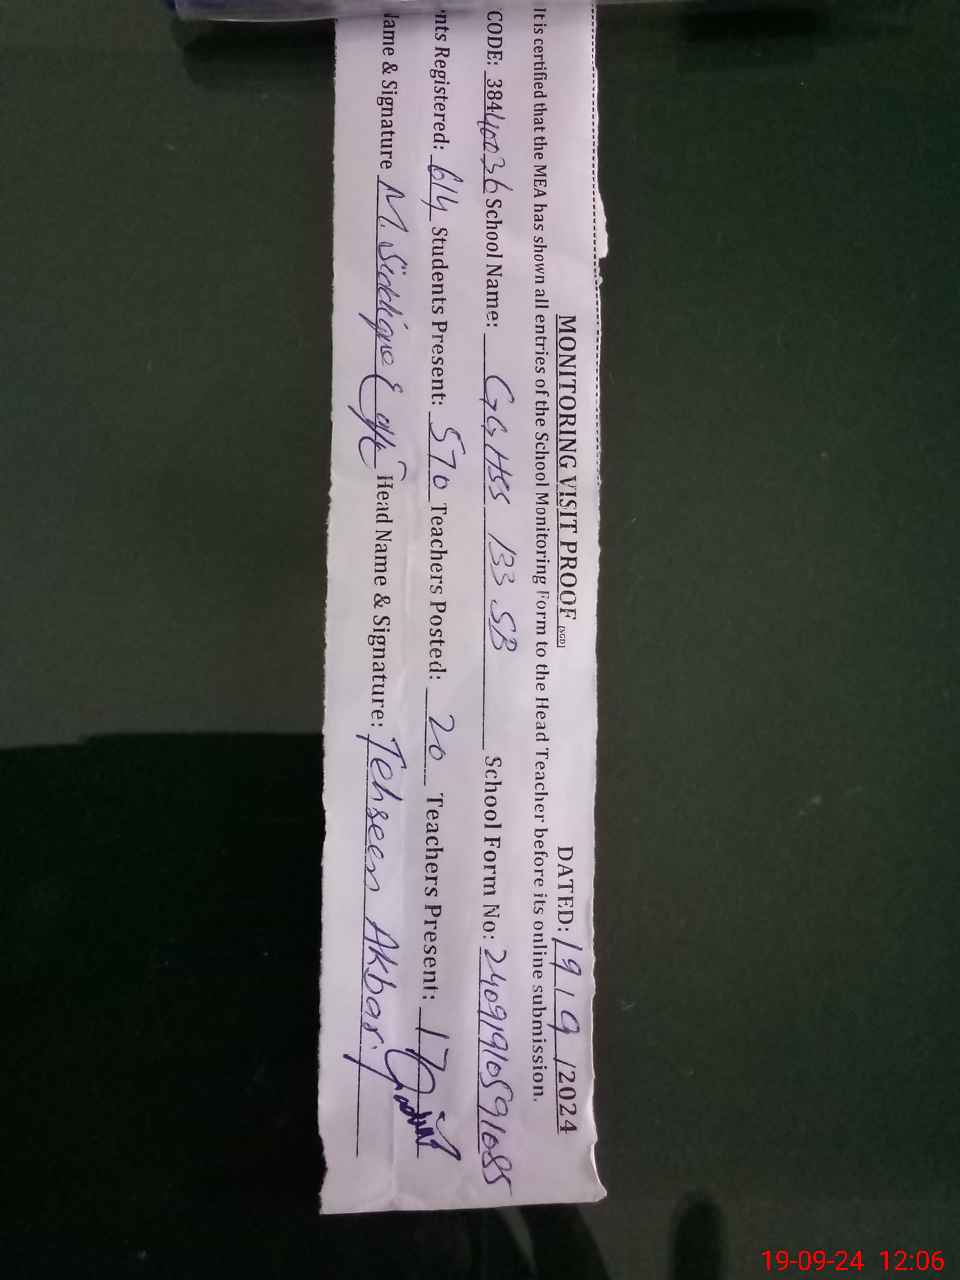 MONITORING VISIT PROOF [SGD] DATED: 19/9/2024
It is certified that the MEA has shown all entries of the School Monitoring Form to the Head Teacher before its online submission.
CODE: 38440036 School Name: GGHSS 133 SB School Form No: 24091910591085
nts Registered: 614 Students Present: 570 Teachers Posted: 20 Teachers Present: 17
Name & Signature M. Siddique Head Name & Signature: Tehseen Akbar
19-09-24 12:06